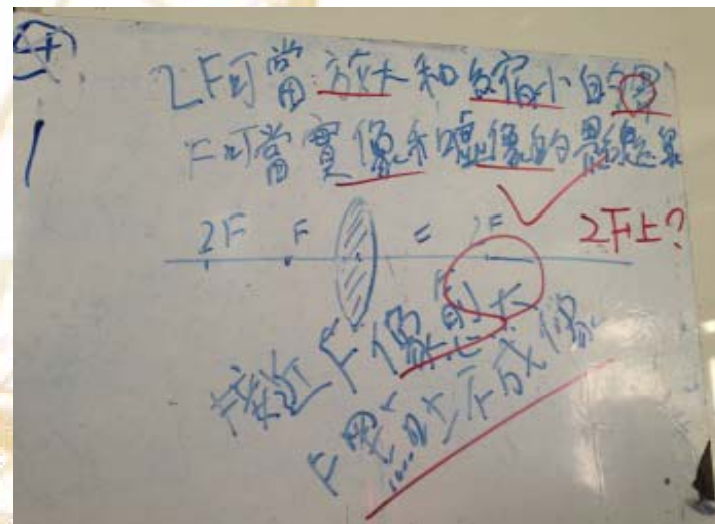 2F可當放大和縮小的界
F可當實像和虛像的界線
2F F F 2F
2F上?
接近F像愈大
F點時不成像